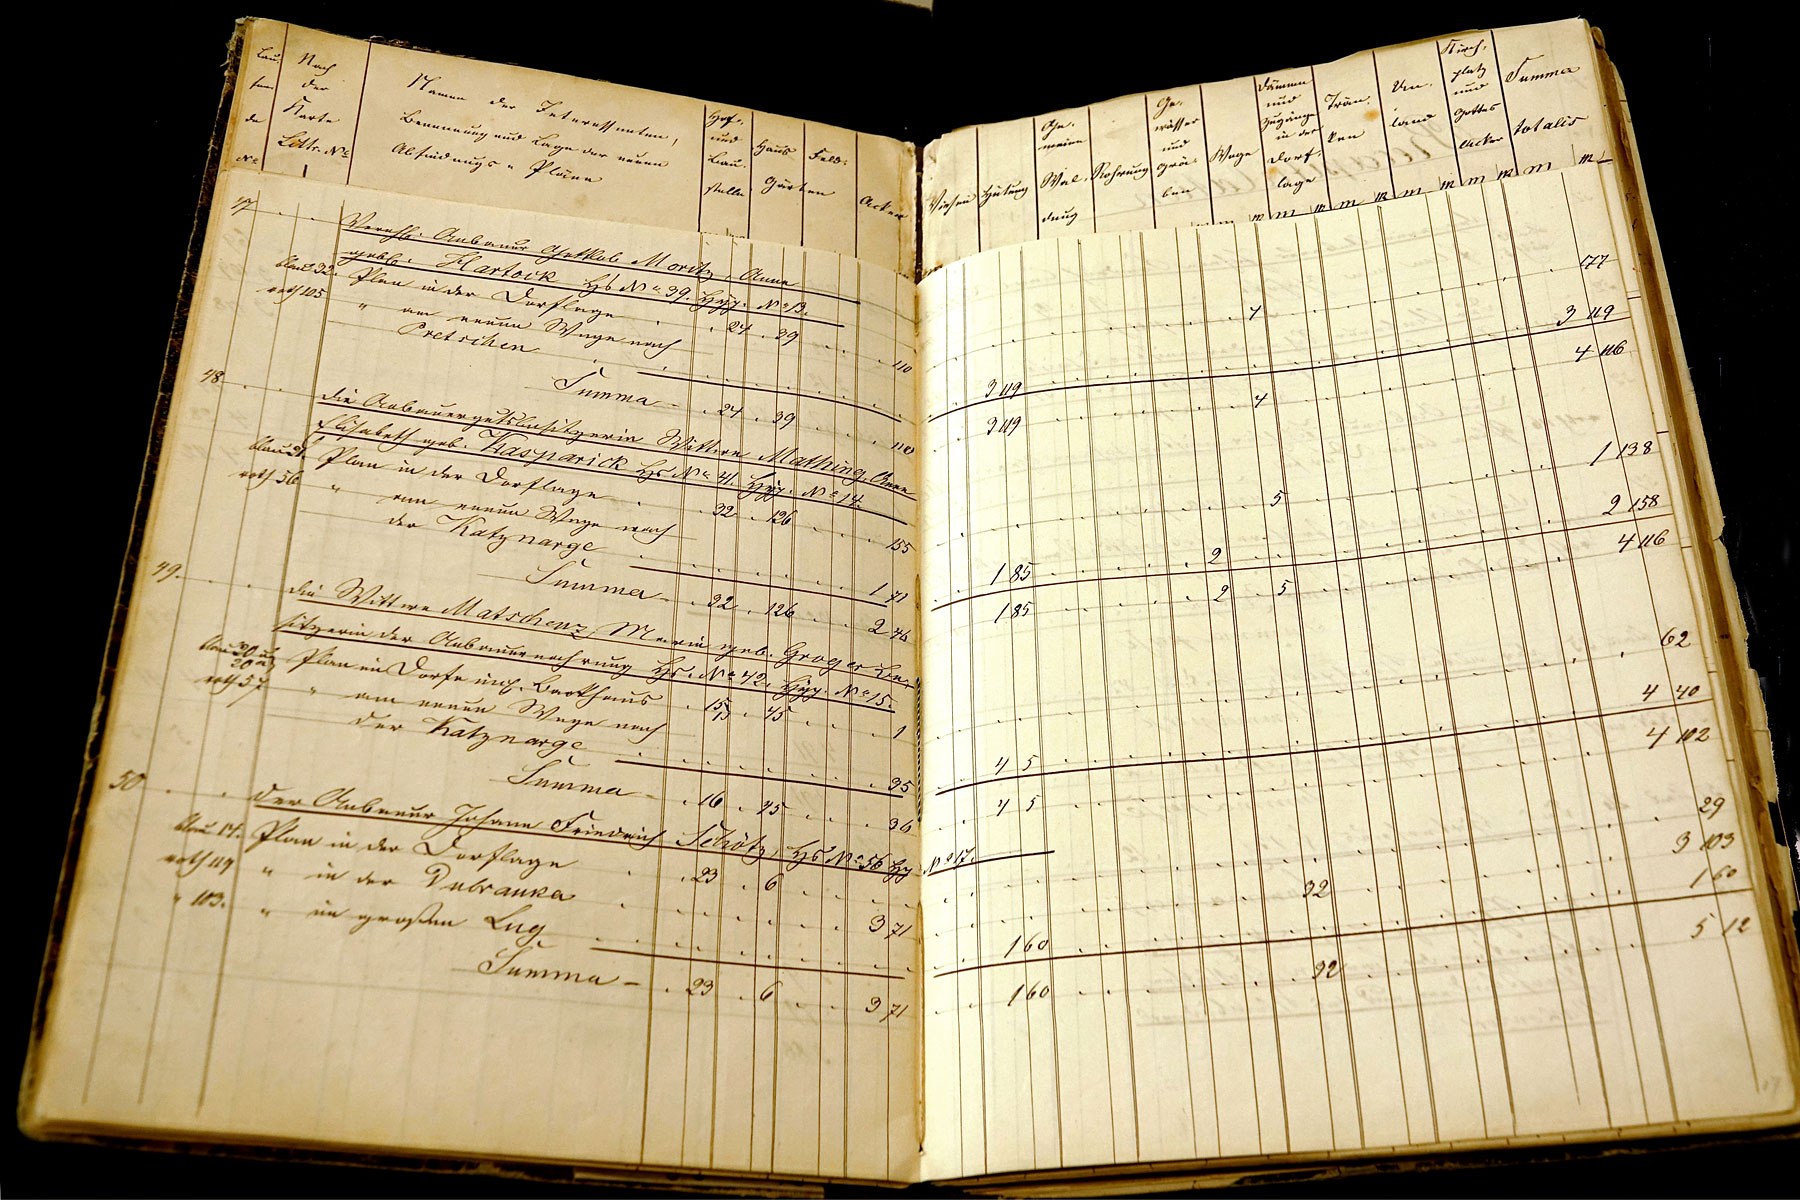 Lau-
fen-
de
No
Nach
der
Karte
Littr. No
Namen der Interessenten,
Benennung und Lage der neuen
Abfindungs-Pläne
Hof-
und
Bau-
stelle
Haus
Gärten
Feld-
Acker
Wiesen
Hütung
Ge-
meine
Wal-
dung
Rohrung
Ge-
wässer
und
Grä-
ben
Wege
Dämme
und
Zugänge
in der
Dorf-
lage
Trän-
ken
Un-
land
Kirch-
platz
und
Gottes
Acker
Summa
totalis
47
Verehl. Anbauer Gottlob Moritz, Anna
gebh. Hartock Hs No 39. Hyp. No 13.
blau 32. Plan in der Dorflage . . 24 . 39 . . . 110 . . . 4 . . . 177
roth 105 " am neuen Wege nach
Pretschen . . . 3 119 . . . 3 119
Summa – . 24 . 39 . . . 110 . . 3 119 . . . 4 . . . 4 116
48
die Anbauergutsbesitzerin Wittwe Mathing, Anna
Elisabeth geb. Kasparick Hs No 41. Hyp. No 14.
blau 21 Plan in der Dorflage . 32 . 126 . . . 155 . . . 5 . . . 1 138
roth 56 " am neuen Wege nach
der Katznarge . . . 1 71 . . 1 85 . . . 2 . . . 2 158
Summa – . 32 . 126 . . . 2 46 . . 1 85 . . . 2 . 5 . . . 4 116
49
die Wittwe Matschenz, Maria geb. Groger Be-
sitzerin der Anbauernahrung Hs. No 42. Hyp. No 15.
blau 20 u. Plan im Dorfe incl. Backhaus . 15 . 45 . . . 1 . . . 62
roth 57 " am neuen Wege nach
der Katznarge . . . 35 . . 4 5 . . . 4 40
Summa – . 16 . 45 . . . 36 . . 4 5 . . . 4 102
50
der Anbauer Johann Friedrich Schötz, Hs No 56 Hyp No 17.
blau 17. Plan in der Dorflage . . 23 . 6 . . . 29
roth 119 " in der Dubrauka . . . 3 71 . . . 32 . . . 3 103
" 103. " im großen Lug . . . 1 60 . . . 1 60
Summa – . 23 . 6 . . . 3 71 . . 1 60 . . . 32 . . . 5 12